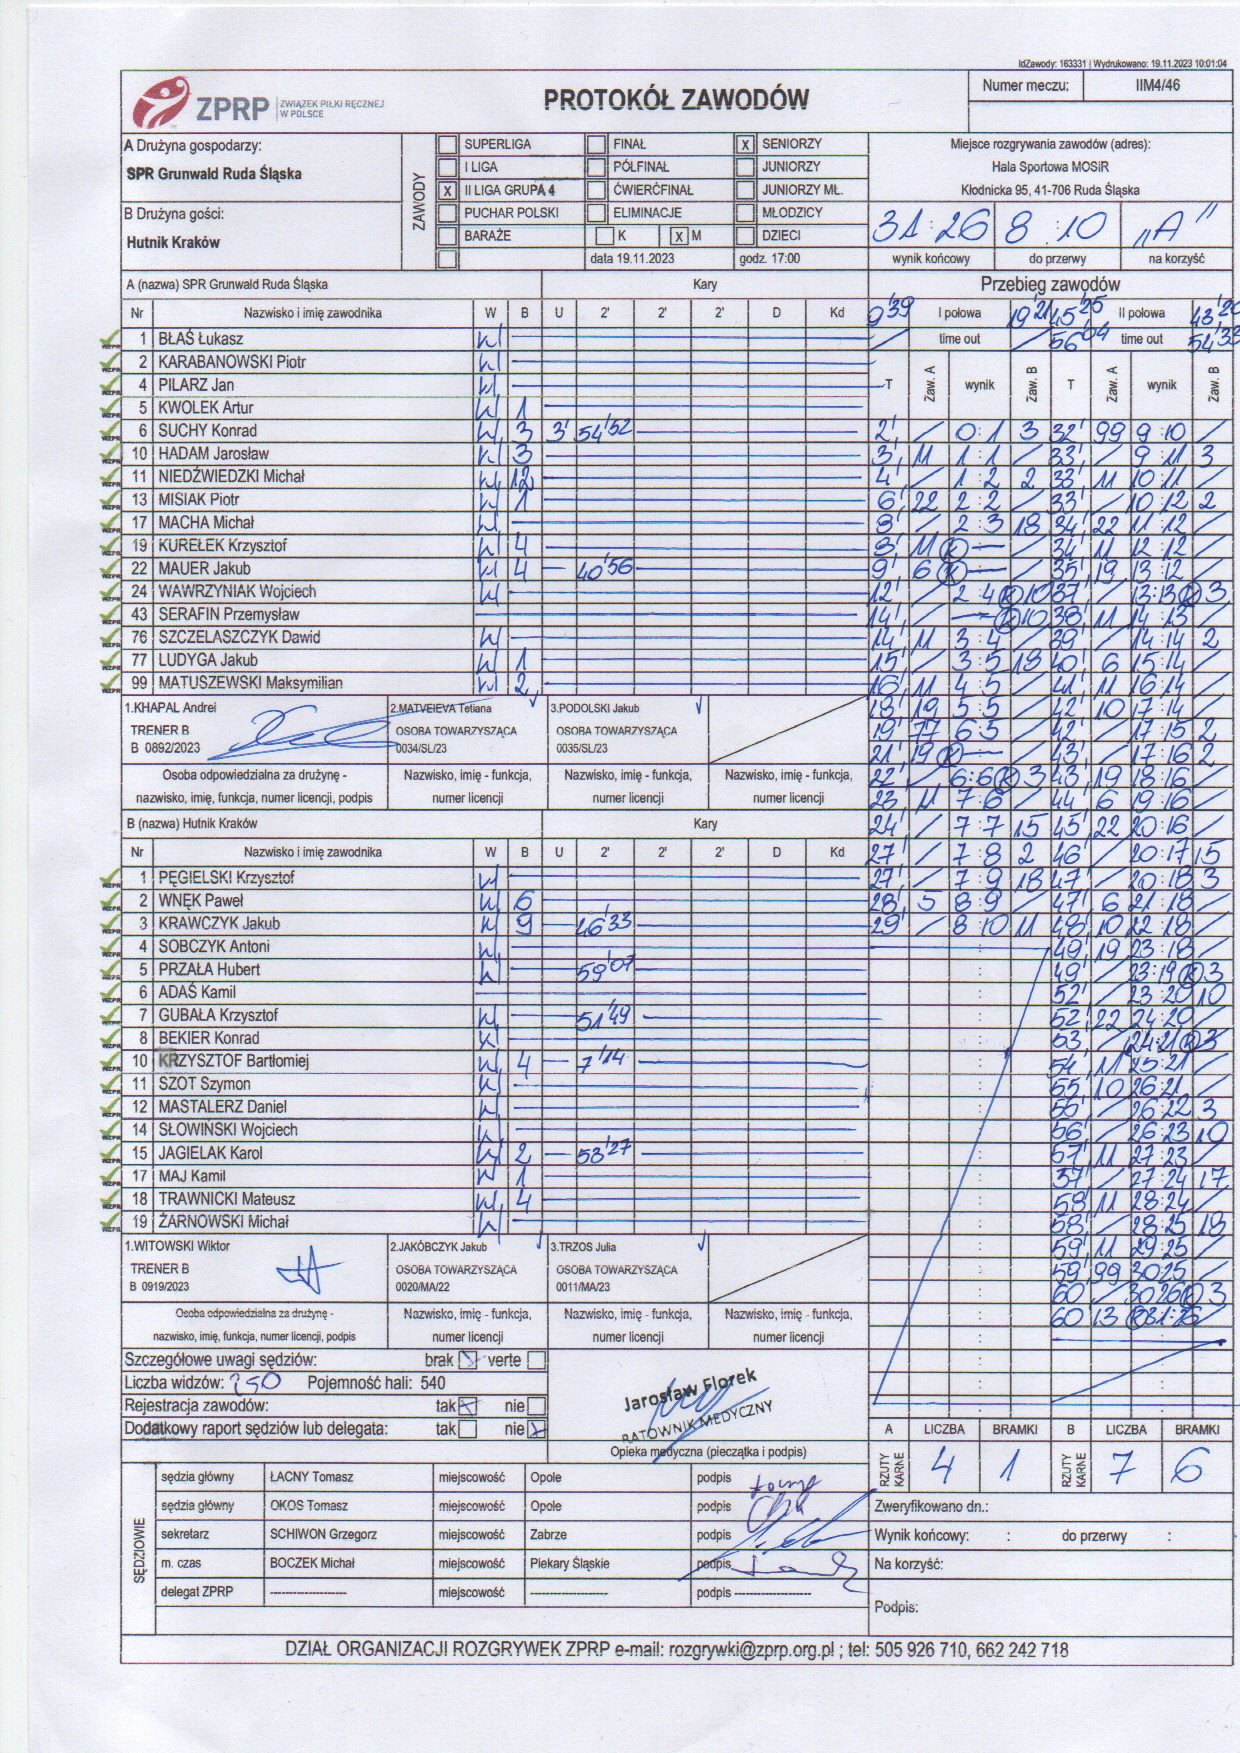 IdZawody: 163331 | Wydrukowano: 19.11.2023 10:01:04
ZPRP ZWIĄZEK PIŁKI RĘCZNEJ W POLSCE
PROTOKÓŁ ZAWODÓW
Numer meczu: IIM4/46
A Drużyna gospodarzy:
SPR Grunwald Ruda Śląska
B Drużyna gości:
Hutnik Kraków
ZAWODY
SUPERLIGA FINAŁ X SENIORZY
I LIGA PÓŁFINAŁ JUNIORZY
X II LIGA GRUPA 4 ĆWIERĆFINAŁ JUNIORZY MŁ.
PUCHAR POLSKI ELIMINACJE MŁODZICY
BARAŻE K X M DZIECI
data 19.11.2023 godz. 17:00
Miejsce rozgrywania zawodów (adres):
Hala Sportowa MOSiR
Kłodnicka 95, 41-706 Ruda Śląska
31:26 8:10 „A”
wynik końcowy do przerwy na korzyść
A (nazwa) SPR Grunwald Ruda Śląska Kary
Nr Nazwisko i imię zawodnika W B U 2' 2' 2' D Kd
1 BŁAŚ Łukasz W
2 KARABANOWSKI Piotr W
4 PILARZ Jan W
5 KWOLEK Artur W 1
6 SUCHY Konrad W 3 3' 54'52
10 HADAM Jarosław W 3
11 NIEDŹWIEDZKI Michał W 12
13 MISIAK Piotr W 1
17 MACHA Michał W
19 KUREŁEK Krzysztof W 4
22 MAUER Jakub W 4 40'56
24 WAWRZYNIAK Wojciech W
43 SERAFIN Przemysław
76 SZCZELASZCZYK Dawid W
77 LUDYGA Jakub W 1
99 MATUSZEWSKI Maksymilian W 2
1.KHAPAL Andrei 2.MATVEIEVA Tetiana 3.PODOLSKI Jakub
TRENER B OSOBA TOWARZYSZĄCA OSOBA TOWARZYSZĄCA
B 0892/2023 0034/SL/23 0035/SL/23
Osoba odpowiedzialna za drużynę - Nazwisko, imię - funkcja, Nazwisko, imię - funkcja, Nazwisko, imię - funkcja,
nazwisko, imię, funkcja, numer licencji, podpis numer licencji numer licencji numer licencji
B (nazwa) Hutnik Kraków Kary
Nr Nazwisko i imię zawodnika W B U 2' 2' 2' D Kd
1 PĘGIELSKI Krzysztof W
2 WNĘK Paweł W 6
3 KRAWCZYK Jakub W 9 46'33
4 SOBCZYK Antoni W
5 PRZAŁA Hubert W 59'07
6 ADAŚ Kamil
7 GUBAŁA Krzysztof W 51'49
8 BEKIER Konrad W
10 KRZYSZTOF Bartłomiej W 4 7'14
11 SZOT Szymon W
12 MASTALERZ Daniel W
14 SŁOWIŃSKI Wojciech W
15 JAGIELAK Karol W 2 53'27
17 MAJ Kamil W 1
18 TRAWNICKI Mateusz W 4
19 ŻARNOWSKI Michał W
1.WITOWSKI Wiktor 2.JAKÓBCZYK Jakub 3.TRZOS Julia
TRENER B OSOBA TOWARZYSZĄCA OSOBA TOWARZYSZĄCA
B 0919/2023 0020/MA/22 0011/MA/23
Osoba odpowiedzialna za drużynę - Nazwisko, imię - funkcja, Nazwisko, imię - funkcja, Nazwisko, imię - funkcja,
nazwisko, imię, funkcja, numer licencji, podpis numer licencji numer licencji numer licencji
Szczegółowe uwagi sędziów: brak verte
Liczba widzów: 250 Pojemność hali: 540
Rejestracja zawodów: tak nie
Dodatkowy raport sędziów lub delegata: tak nie
Jarosław Florek
RATOWNIK MEDYCZNY
Opieka medyczna (pieczątka i podpis)
SĘDZIOWIE
sędzia główny ŁACNY Tomasz miejscowość Opole podpis
sędzia główny OKOS Tomasz miejscowość Opole podpis
sekretarz SCHIWON Grzegorz miejscowość Zabrze podpis
m. czas BOCZEK Michał miejscowość Piekary Śląskie podpis
delegat ZPRP -------------------- miejscowość -------------------- podpis --------------------
Przebieg zawodów
9'39 I połowa 19'21 45'25 II połowa 43'20
/ time out / 56'04 time out 54'33
T Zaw. A wynik Zaw. B T Zaw. A wynik Zaw. B
2' / 0:1 3 32' 99 9:10 /
3' 11 1:1 / 33' / 9:11 3
4' / 1:2 2 33' 11 10:11 /
6' 22 2:2 / 33' / 10:12 2
8' / 2:3 18 34' 22 11:12 /
8' 11 K — / 34' 11 12:12 /
9' 6 K — / 35' 19 13:12 /
12' / 2:4 K 10 37' / 13:13 K 3
14' / — K 10 38' 11 14:13 /
14' 11 3:4 / 39' / 14:14 2
15' / 3:5 18 40' 6 15:14 /
16' 11 4:5 / 41' 11 16:14 /
18' 19 5:5 / 42' 10 17:14 /
19' 77 6:5 / 42' / 17:15 2
21' 19 K — / 43' / 17:16 2
22' / 6:6 K 3 43' 19 18:16 /
23' 11 7:6 / 44' 6 19:16 /
24' / 7:7 15 45' 22 20:16 /
27' / 7:8 2 46' / 20:17 15
27' / 7:9 18 47' / 20:18 3
28' 5 8:9 / 47' 6 21:18 /
29' / 8:10 11 48' 10 22:18 /
49' 19 23:18 /
49' / 23:19 K 3
52' / 23:20 10
52' 22 24:20 /
53' / 24:21 K 3
54' 11 25:21 /
55' 10 26:21 /
55' / 26:22 3
56' / 26:23 10
57' 11 27:23 /
57' / 27:24 17
58' 11 28:24 /
58' / 28:25 18
59' 11 29:25 /
59' 99 30:25 /
60' / 30:26 K 3
60' 13 K 31:26 /
A LICZBA BRAMKI B LICZBA BRAMKI
RZUTY KARNE 4 1 RZUTY KARNE 7 6
Zweryfikowano dn.:
Wynik końcowy: : do przerwy :
Na korzyść:
Podpis:
DZIAŁ ORGANIZACJI ROZGRYWEK ZPRP e-mail: rozgrywki@zprp.org.pl ; tel: 505 926 710, 662 242 718